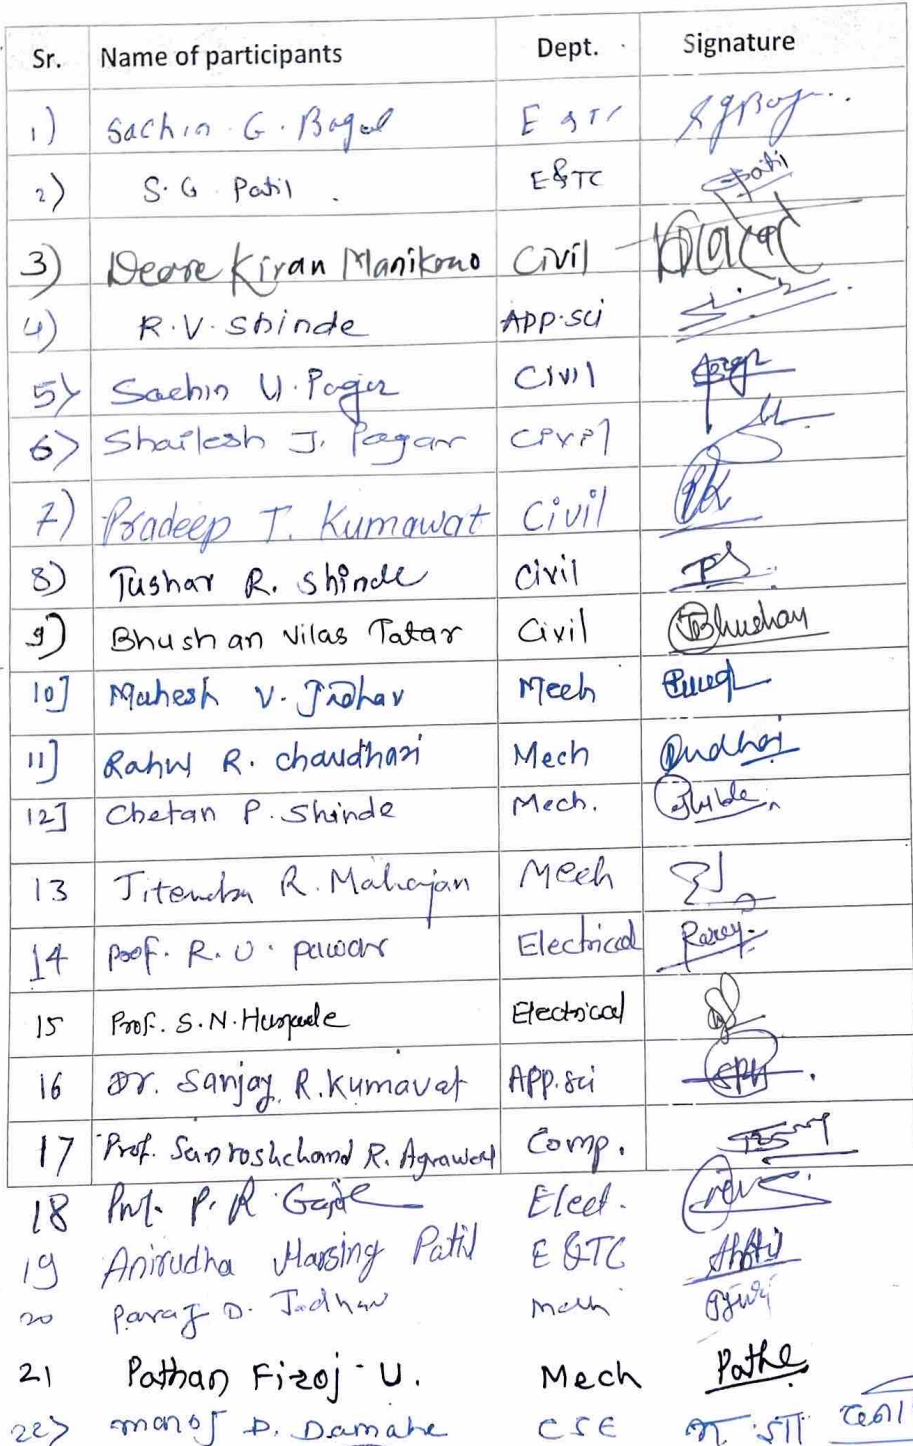 Sr. Name of participants Dept. Signature
1) Sachin G. Bagul E & TC
2) S. G. Patil E&TC Patil
3) Deore Kiran Manikrao Civil
4) R.V. Shinde App.sci
5) Sachin U. Pagar Civil
6) Shailesh J. Pagar Civil
7) Pradeep T. Kumawat Civil PK
8) Tushar R. Shinde Civil
9) Bhushan Vilas Tatar Civil Bhushan
10] Mahesh V. Jadhav Mech
11] Rahul R. chaudhari Mech
12] Chetan P. Shinde Mech.
13 Jitendra R. Mahajan Mech
14 Prof. R. U. Pawar Electrical
15 Prof. S.N. Electrical
16 Dr. Sanjay R. Kumavat App.sci
17 Prof. Santoshchand R. Agrawal Comp.
18 Prof. P. R. Elect.
19 Anirudha Harsing Patil E &TC
20 Parag D. Jadhav Mech
21 Pathan Firoj U. Mech Pathe
22> Manoj D. Damahe CSE